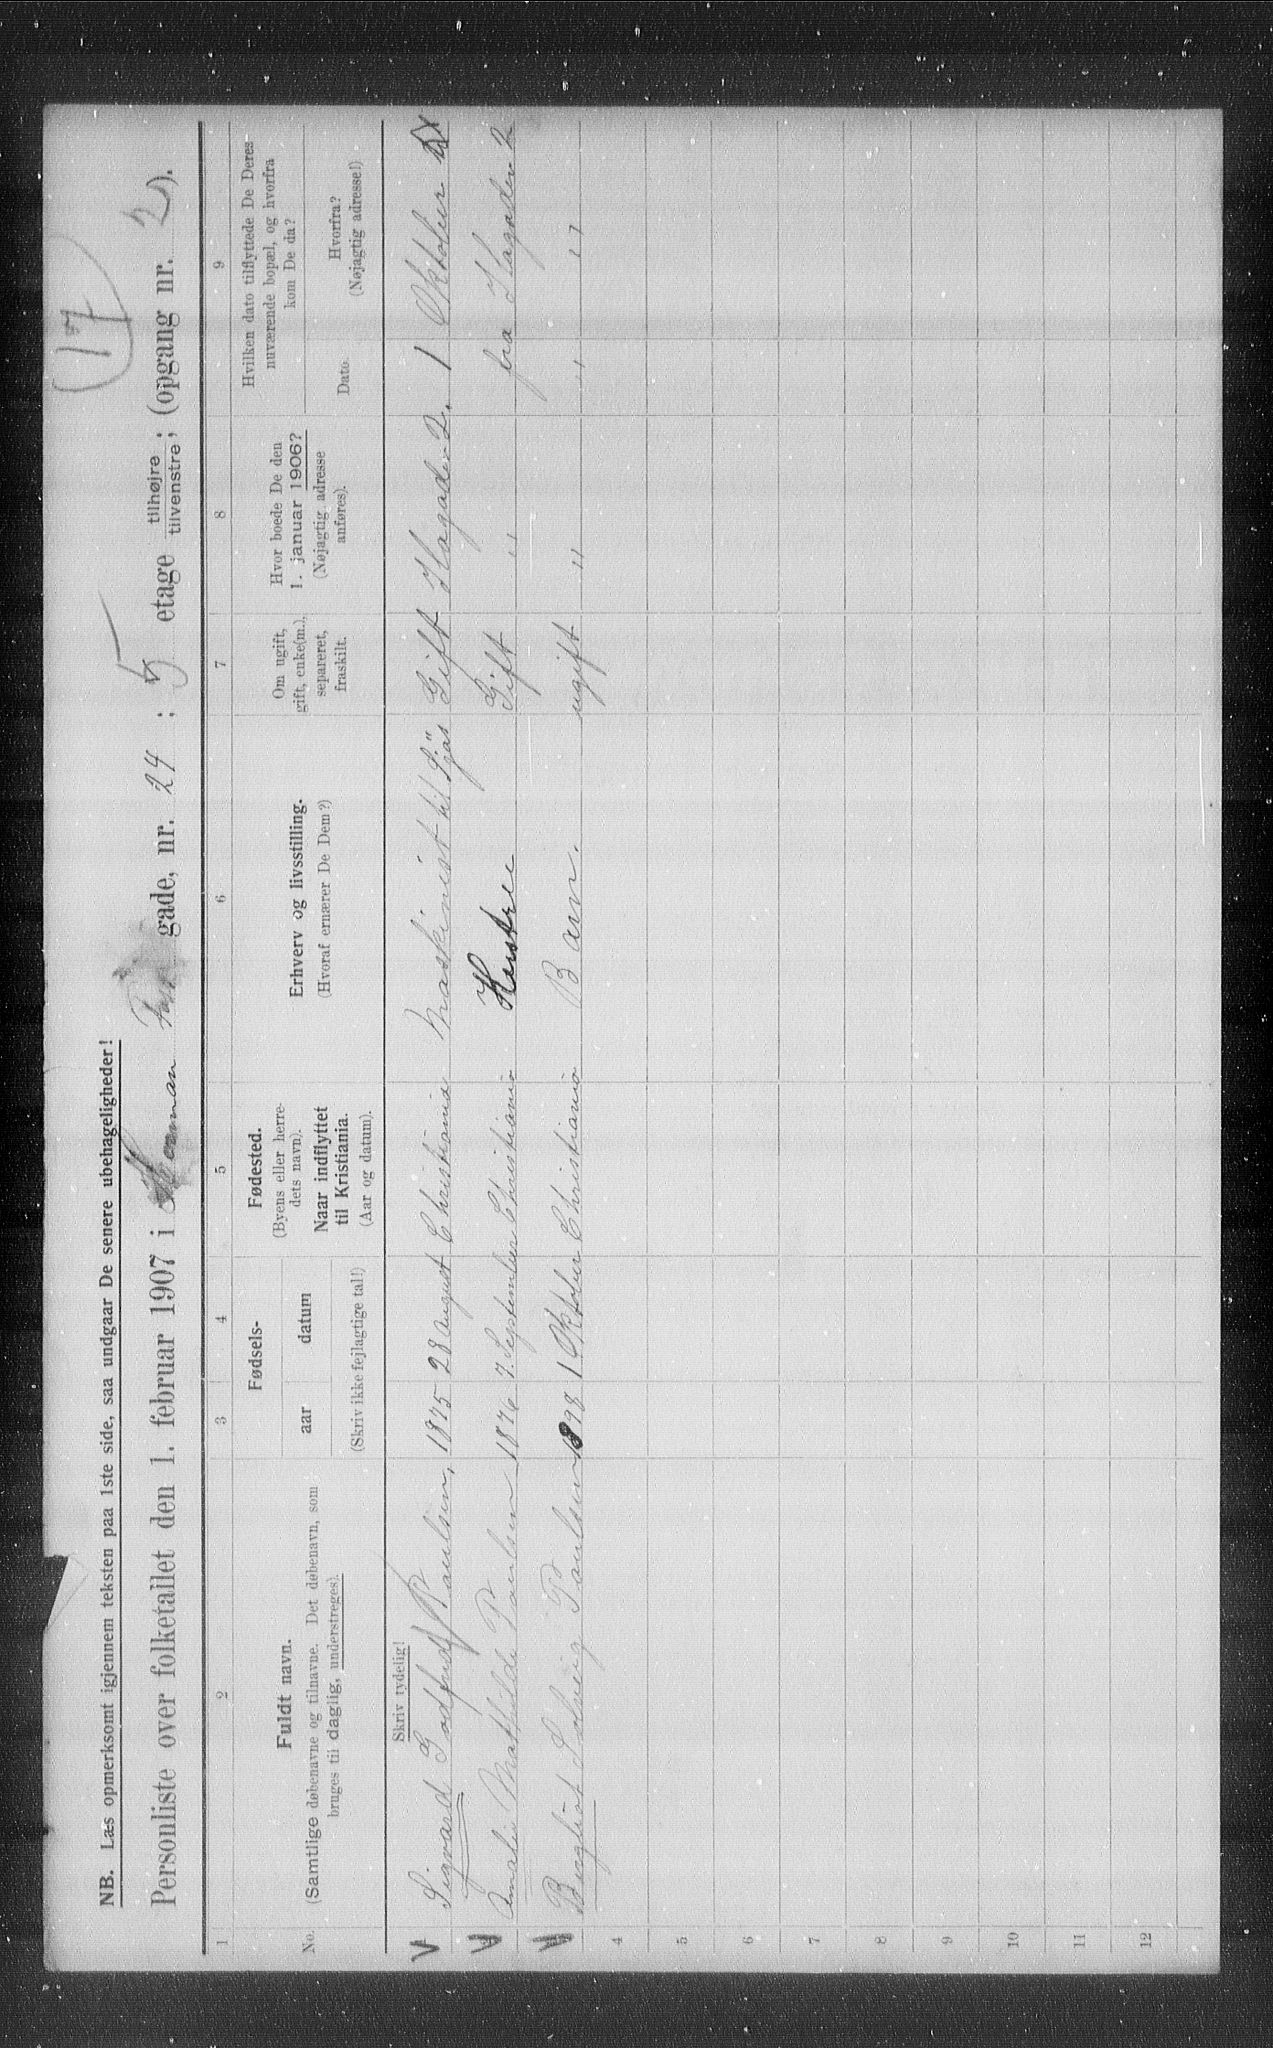 (17)
NB. Læs opmerksomt igjennem teksten paa 1ste side, saa undgaar De senere ubehageligheder!
Personliste over folketallet den 1. februar 1907 i Herman Foss gade, nr. 24 ; 5 etage tilhøjre tilvenstre; (opgang nr. 2).
1 2 3 4 5 6 7 8 9
No.
Fuldt navn.
(Samtlige døbenavne og tilnavne. Det døbenavn, som
bruges til daglig, understreges).
Fødsels-
aar datum
(Skriv ikke fejlagtige tal!)
Fødested.
(Byens eller herre-
dets navn).
Naar indflyttet
til Kristiania.
(Aar og datum).
Erhverv og livsstilling.
(Hvoraf ernærer De Dem?)
Om ugift,
gift, enke(m.),
separeret,
fraskilt.
Hvor boede De den
1. januar 1906?
(Nøjagtig adresse
anføres).
Hvilken dato tilflyttede De Deres
nuværende bopæl, og hvorfra
kom De da?
Dato.
Hvorfra?
(Nøjagtig adresse!)
Skriv tydelig!
Sigvard Godfred Paulsen, 1875 28 august Christiania Maskinist til Sjøs Gift Hagaden 2. 1 Oktober
Amalie Mathilde Paulsen 1876 7. September Christiania Hustru Gift " fra Hagaden 2
Bergliot Solveig Paulsen 1898 1 Oktober Christiania Barn. ugift " " "
4
5
6
7
8
9
10
11
12